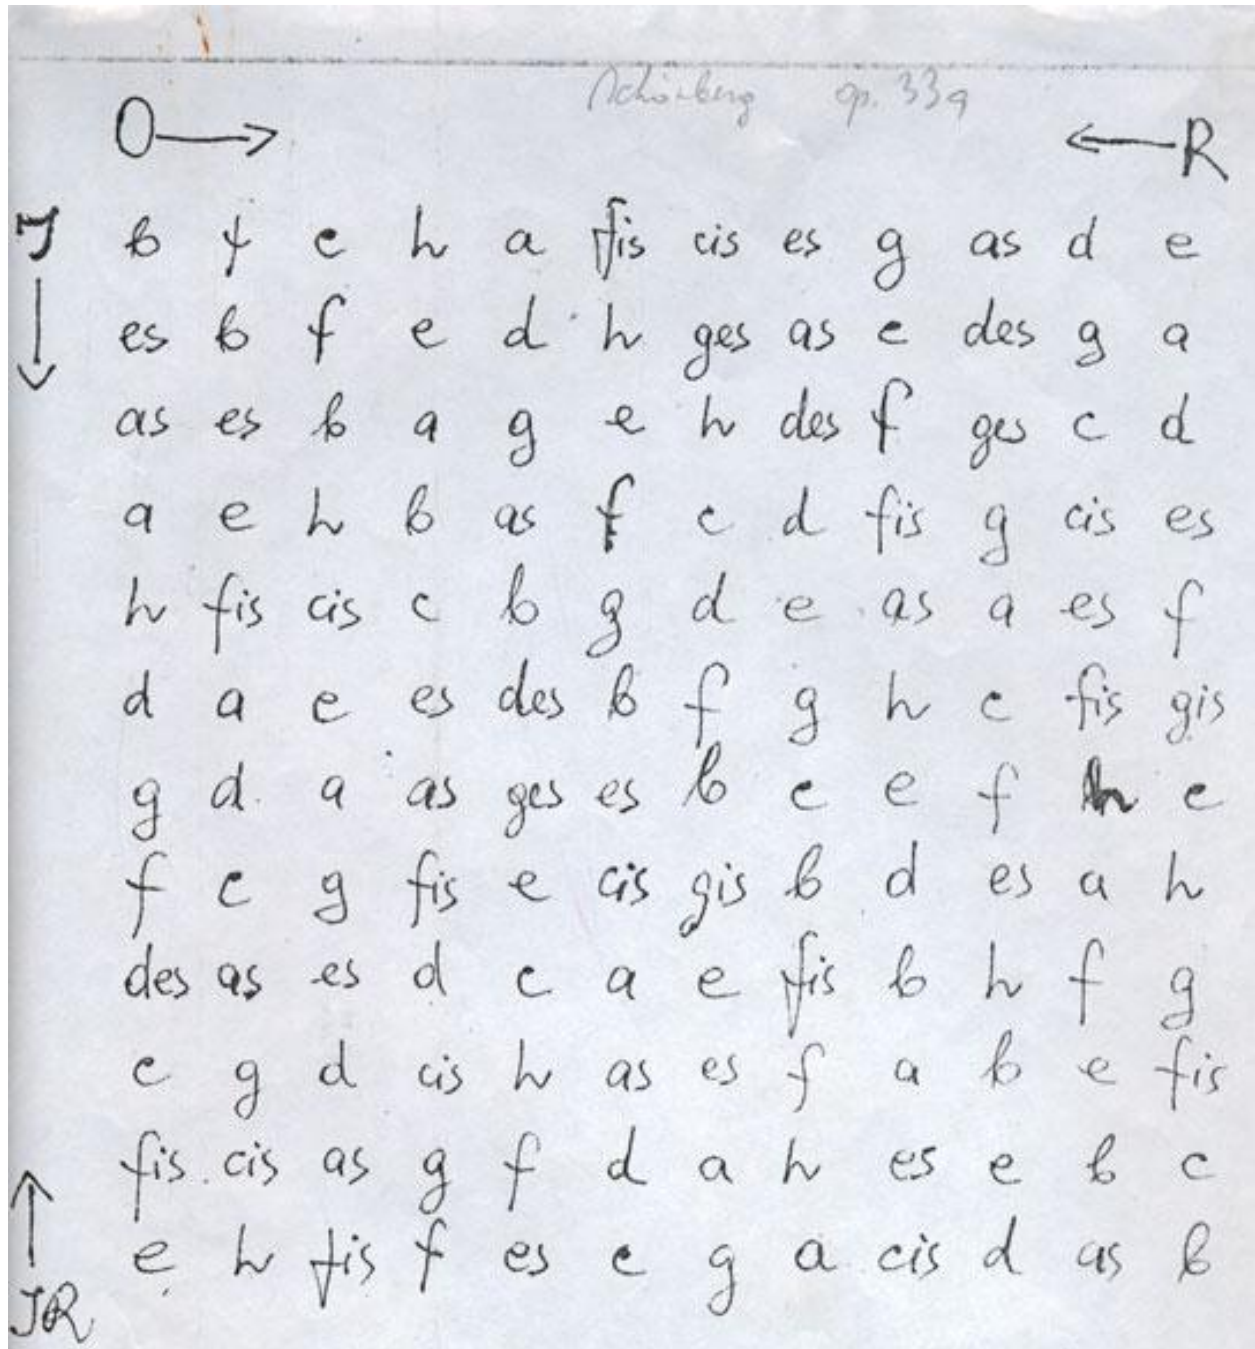 Schönberg op. 33a
O → ← R
J b f c h a fis cis es g as d e
es b f e d h ges as c des g a
as es b a g e h des f ges c d
a e h b as f c d fis g cis es
h fis cis c b g d e as a es f
d a e es des b f g h c fis gis
g d a as ges es b c e f h c
f c g fis e cis gis b d es a h
des as es d c a e fis b h f g
c g d cis h as es f a b e fis
fis cis as g f d a h es e b c
e h fis f es c g a cis d as b
JR